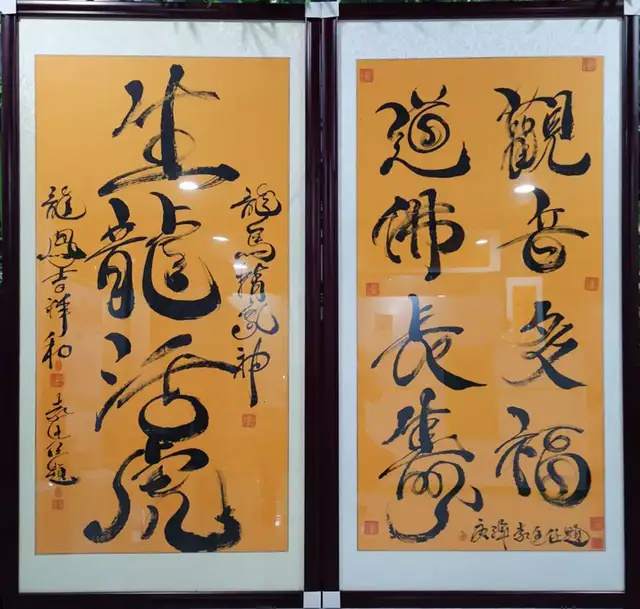 觀音多福
道佛長壽
題
龍馬精氣神
生龍活虎
龍鳳吉祥和
題